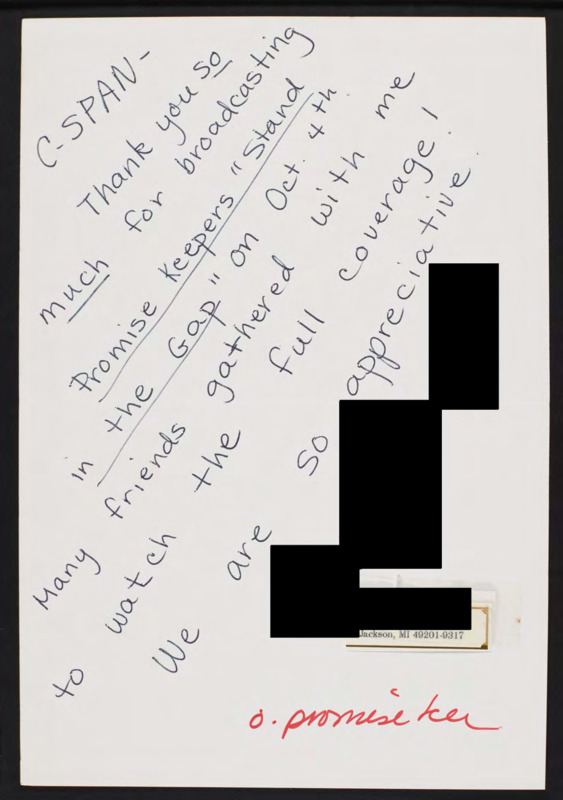 C-SPAN-
Thank you so
much for broadcasting
Promise Keepers "Stand
in the Gap" on Oct. 4th.
Many friends gathered with me
to watch the full coverage!
We are so appreciative.
Jackson, MI 49201-9317
o. promise ker